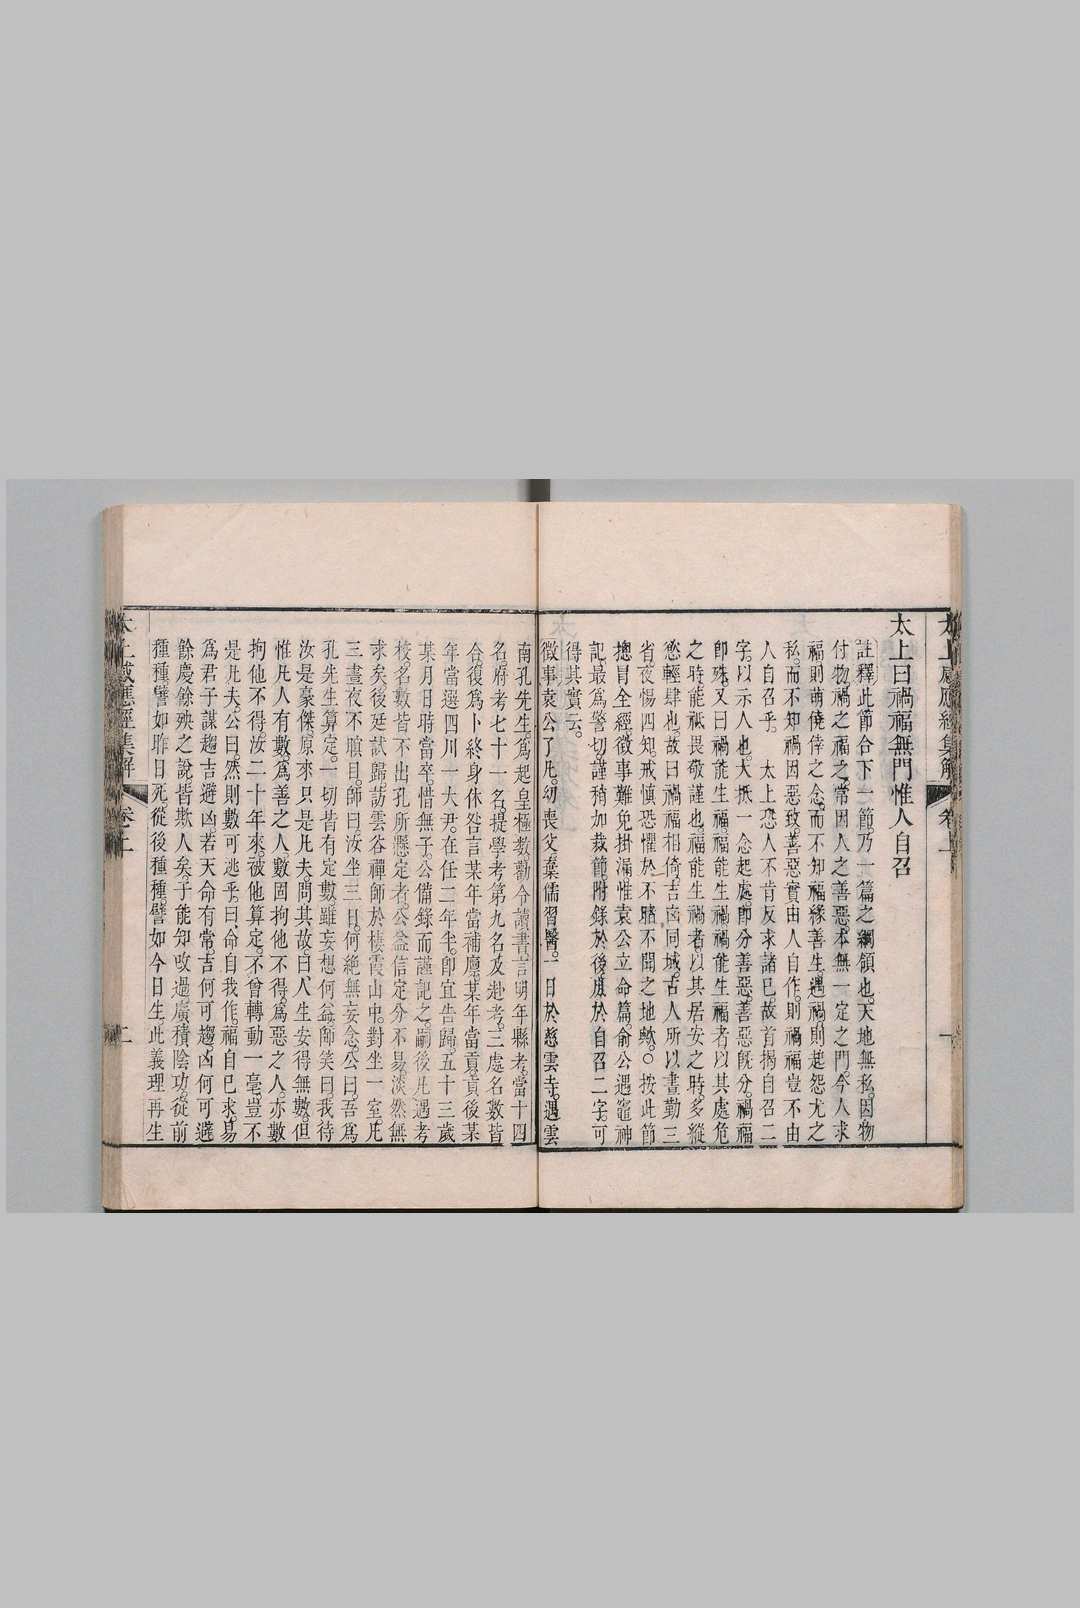 太上感應經集解 卷上 一
太上曰禍福無門惟人自召
註釋此節合下一節乃一篇之綱領也天地無私因物
付物禍之福之常因人之善惡本無一定之門今人求
福則萌僥倖之念而不知福緣善生遇禍則起怨尤之
私而不知禍因惡致善惡實由人自作則禍福豈不由
人自召乎 太上恐人不肯反求諸已故首揭自召二
字以示人也大抵一念起處即分善惡善惡既分禍福
即殊又曰禍能生福福能生禍禍能生福者以其處危
之時能祇畏敬謹也福能生禍者以其居安之時多縱
慾輕肆也故曰禍福相倚吉凶同域古人所以晝勤三
省夜惕四知戒慎恐懼於不睹不聞之地歟○按此節
總冒全經徵事難免掛漏惟袁公立命篇俞公遇竈神
記最為警切謹稍加裁節附錄於後庶於自召二字可
得其實云
徵事袁公了凡幼喪父棄儒習醫一日於慈雲寺遇雲
南孔先生為起皇極數勸令讀書言明年縣考當十四
名府考七十一名提學考第九名及赴考三處名數皆
合復為卜終身休咎言某年當補廩某年當貢貢後某
年當選四川一大尹在任二年半即宜告歸五十三歲
某月日時當卒惜無子公備錄而謹記之嗣後凡遇考
校名數皆不出孔所懸定者公益信定分不易淡然無
求矣後廷試歸訪雲谷禪師於棲霞山中對坐一室凡
三晝夜不瞚目師曰汝坐三日何絶無妄念公曰吾為
孔先生算定一切皆有定數雖妄想何益師笑曰我待
汝是豪傑原來只是凡夫問其故曰人生安得無數但
惟凡人有數為善之人數固拘他不得為惡之人亦數
拘他不得汝二十年來被他算定不曾轉動一毫豈不
是凡夫公曰然則數可逃乎曰命自我作福自已求易
為君子謀趨吉避凶若天命有常吉何可趨凶何可避
餘慶餘殃之說皆欺人矣子能知改過廣積陰功從前
種種譬如昨日死從後種種譬如今日生此義理再生
太上感應經集解 卷上 二